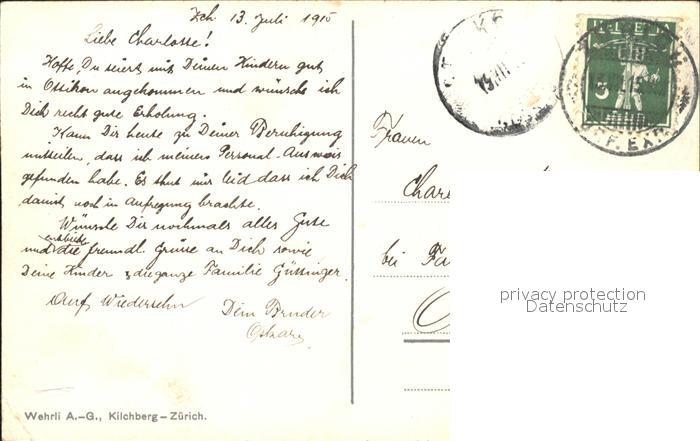 Zch. 13. Juli 1915
Liebe Charlotte!
Hoffe, Du seiest mit Deinen Kindern gut
in Ossikon angekommen und wünsche ich
Dich recht gute Erholung.
Kann Dir heute zu Deiner Beruhigung
mitteilen, dass ich meinen Personal-Ausweis
gefunden habe. Es thut mir leid dass ich Dich
damit noch in Aufregung brachte.
Wünsche Dir nochmals alles Gute
und entbiete die freundl. Grüsse an Dich sowie
Deine Kinder & die ganze Familie Güssinger.
Auf Wiedersehn
Dein Bruder
Oskar
Wehrli A.-G., Kilchberg – Zürich.
HELVETIA
5
Frauen
Char
bei
privacy protection
Datenschutz